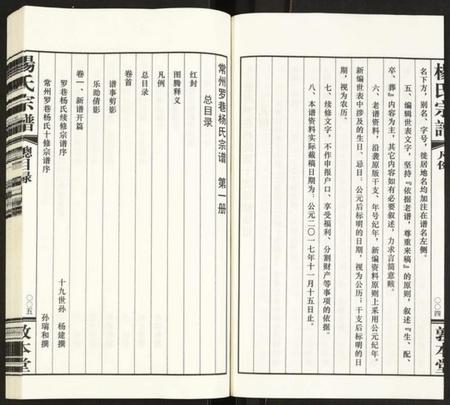 楊氏宗譜
凡例
〇〇四
敦本堂
名下方，别名、字号，徙居地名均加注在谱名左侧。
五、编辑世表文字，坚持『依据老谱，尊重来稿』的原则，叙述『生、配、
卒、葬』内容为主，其它内容如有必要叙述，力求言简意赅。
六、老谱资料，沿袭原版干支、年号纪年，新编资料原则上采用公元纪年。
新编世表中涉及的生日、忌日：公元后标明的日期，视为公历；干支后标明的日
期，视为农历。
七、续修文字，不作申报户口、享受福利、分割财产等事项的依据。
八、本谱资料实际截稿日期为：公元二〇一七年十一月十五日止。
常州罗巷杨氏宗谱 第一册
总目录
红封
图腾释义
凡例
总目录
卷首
谱事剪影
乐助倩影
卷一、新谱开篇
罗巷杨氏续修宗谱序 十九世孙 杨建撰
常州罗巷杨氏十修宗谱序 孙瑞和撰
楊氏宗譜
總目录
〇〇五
敦本堂